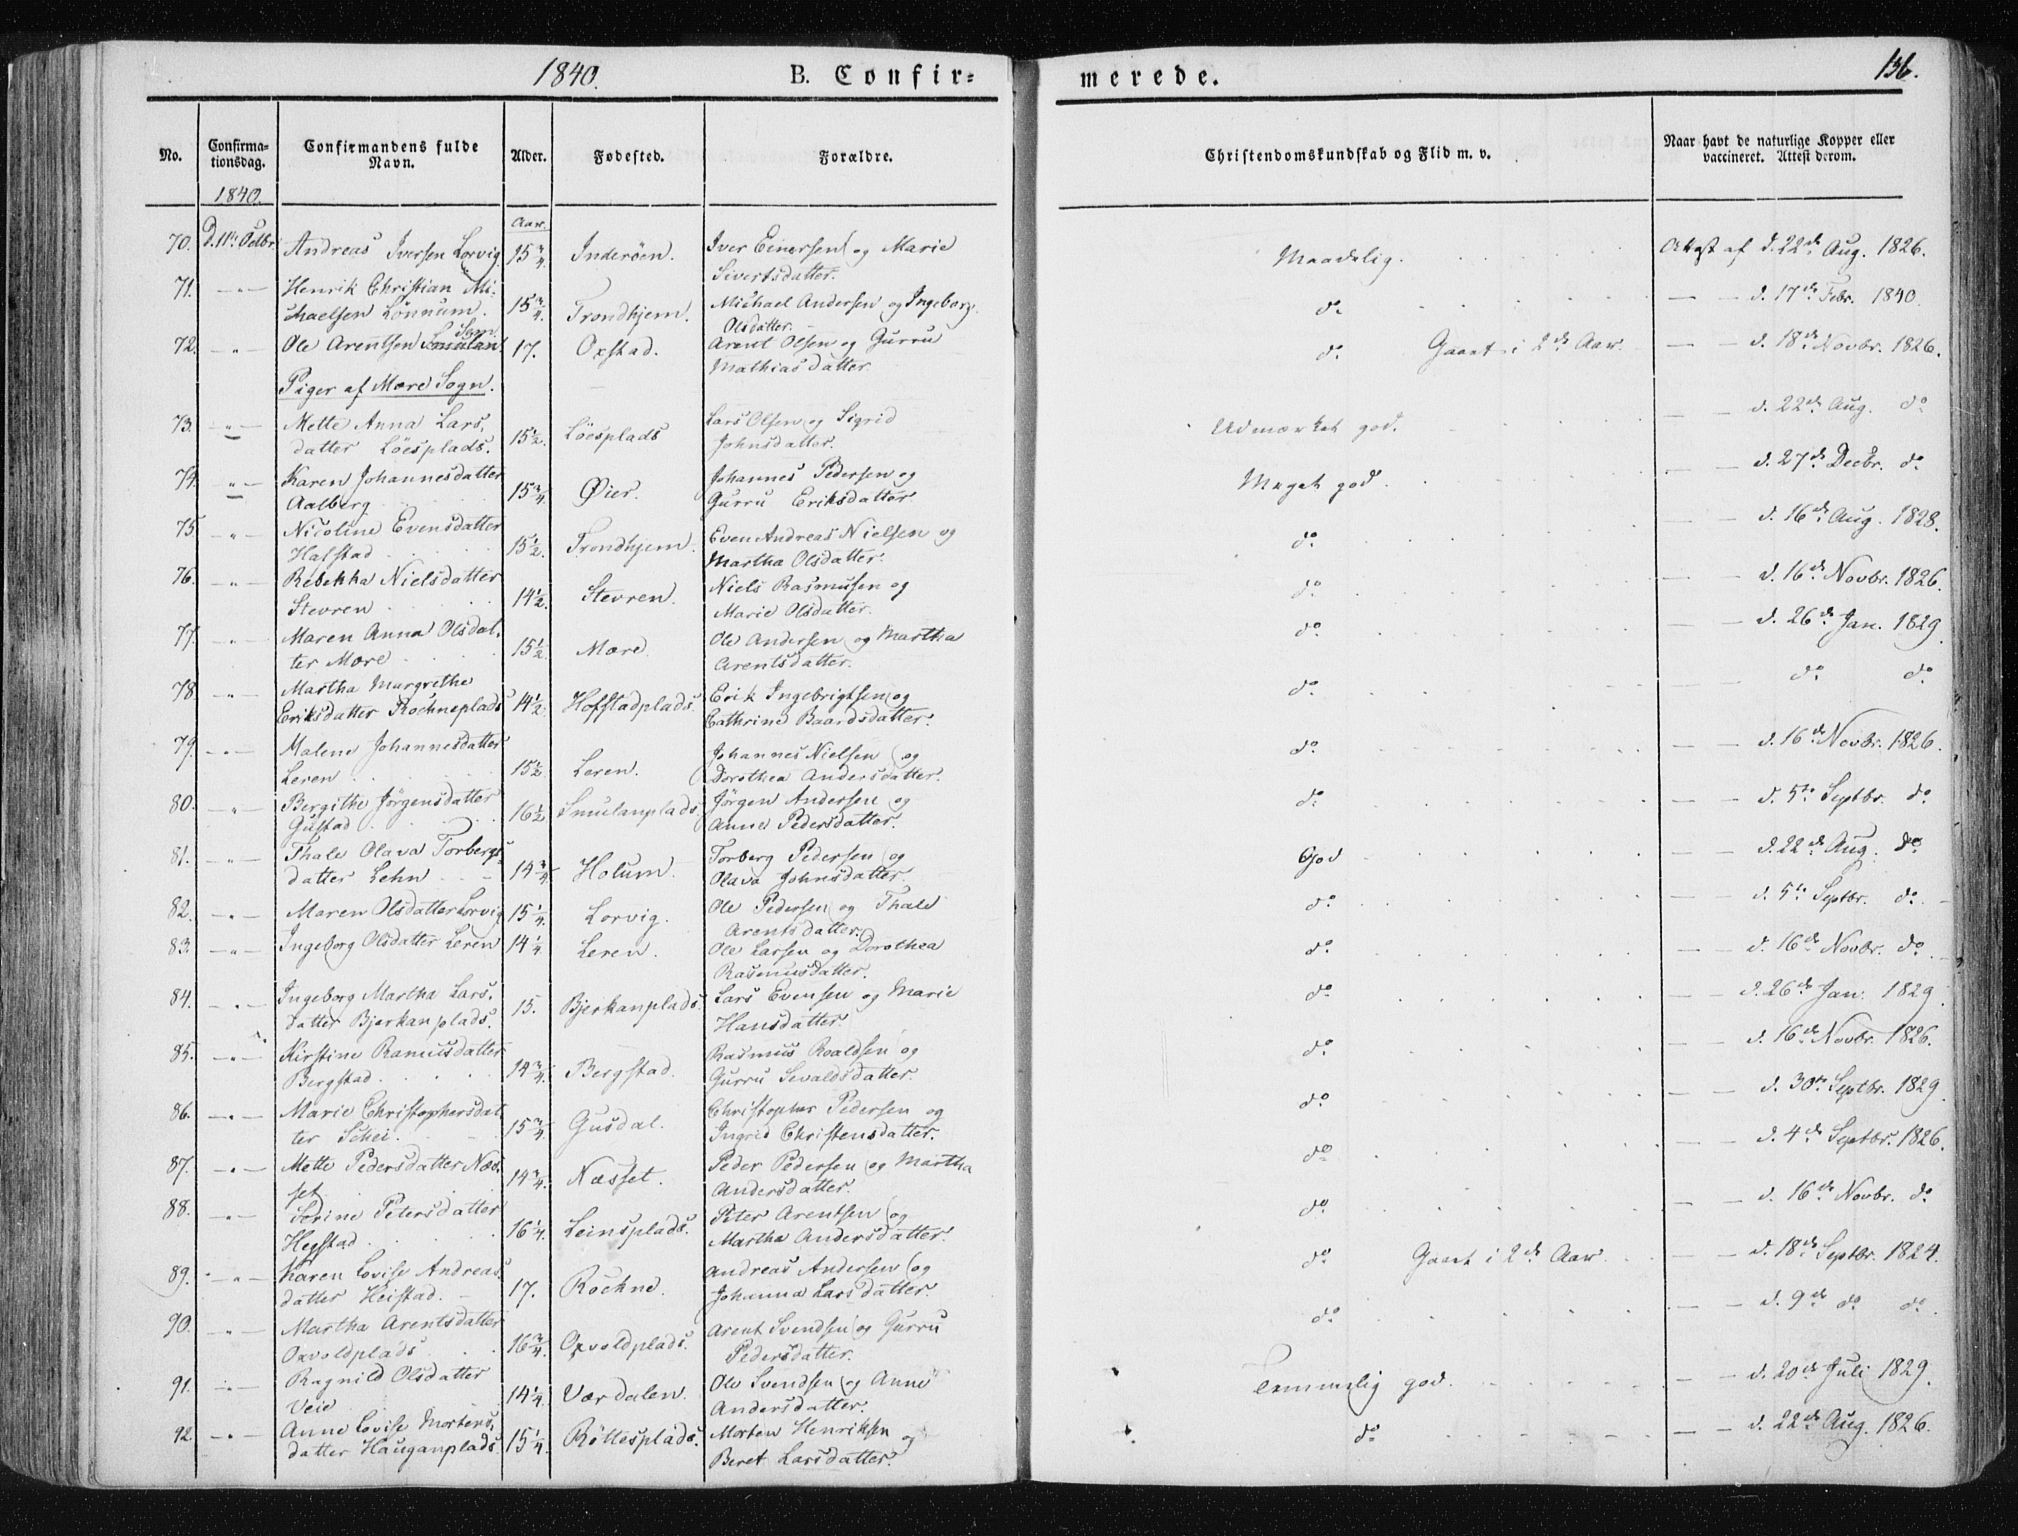 1840. B. Confirmerede. 136.
No. Confirmationsdag. Confirmandens fulde Navn. Alder. Fødested. Forældre. Christendomskundskab og Flid m. v. Naar havt de naturlige Kopper eller vaccineret. Attest derom.
1840. Aar.
70. D. 11te Octbr. Andreas Iversen Lorvig 15 3/4. Inderöen. Iver Einersen og Marie Sivertsdatter. Maadelig. Attest af d. 22de Aug. 1826.
71. " Henrik Christian Michaelsen Lönnum. 15 3/4. Trondhjem. Michael Andersen og Ingeborg Olsdatter. do — — d. 17de Febr. 1840.
72. " Ole Arentsen Sem 17. Oxstad. Arent Olsen og Gurru Mathiasdatter. do Gaaet i 2de Aar. — — d. 18de Novbr. 1826.
Piger af Mære Sogn.
73. " Mette Anna Larsdatter Löesplads. 15 1/2. Löesplads Lars Olsen og Sigrid Johnsdatter. Udmærket god. — — d. 22de Aug. do
74. " Karen Johannesdatter Aalberg 15 3/4. Øier. Johannes Pedersen og Gurru Eriksdatter Meget god. — — d. 27de Decbr. do
75. " Nicoline Evensdatter Halstad 15 1/2. Trondhjem. Even Andreas Nielsen og Martha Olsdatter. do — — d. 16de Aug. 1828.
76. " Rebekka Nielsdatter Stevren 14 1/2. Stevren. Niels Rasmusen og Marie Olsdatter. do — — d. 16de Novbr. 1826.
77. " Maren Anna Olsdatter Mære 15 1/2. Mære. Ole Andersen og Martha Arentsdatter. do — — d. 26de Jan. 1829.
78. " Martha Margrethe Eriksdatter Rochneplads 14 1/2. Hofstadplads. Erik Ingebrigtsen og Cathrine Baardsdatter. do — — do do
79. " Malene Johannesdatter Leren 15 1/2. Leren. Johannes Nielsen og Dorothea Andersdatter. do — — d. 16de Novbr. 1826.
80. " Bergithe Jörgensdatter Gustad 16 1/2 Smulanplads. Jörgen Andersen og Anne Pedersdatter. do — — d. 5te Septbr. do
81. " Thale Olava Torbergsdatter Lehn 14 3/4 Holum. Torberg Pedersen og Olava Johnsdatter. God — — d. 22de Aug. do
82. " Maren Olsdatter Lorvig 15 1/4. Lorvig. Ole Pedersen og Thale Arentsdatter. do — — d. 5te Septbr. do
83. " Ingeborg Olsdatter Leren 14 1/4 Leren. Ole Larsen og Dorothea Rasmusdatter. do — — d. 16de Novbr. do
84. " Ingeborg Martha Larsdatter Bjerkanplads. 15. Bjerkanplads. Lars Evensen og Marie Hansdatter. do — — d. 26de Jan. 1829.
85. " Kirstine Ramusdatter Bergstad. 14 3/4. Bergstad. Rasmus Roaldsen og Gurru Sevaldsdatter. do — — d. 16de Novbr. 1826.
86. " Marie Christophersdatter Schei. 15 3/4. Gusdal. Christopher Pedersen og Ingrid Christensdatter. do — — d. 30te Septbr. 1829.
87. " Mette Pedersdatter Næsset 14 3/4. Næsset. Peder Pedersen og Martha Andersdatter. do — — d. 4de Septbr. 1826.
88. " Serine Petersdatter Hegstad 16 1/4. Leinsplads. Peter Arentsen og Martha Andersdatter. do — — d. 16de Novbr. do
89. " Karen Lovise Andreasdatter Heistad. 17. Rochne. Andreas Andersen og Johanna Larsdatter. do Gaaet i 2de Aar — — d. 18de Septbr. 1824.
90. " Martha Arentsdatter Oxvoldplads 16 3/4. Oxvoldplads. Arent Svendsen og Gurru Pedersdatter. do — — d. 9de do do
91. " Ragnild Olsdatter Veie 14 1/4 Værdalen. Ole Svendsen og Anne Andersdatter. Temmelig god. — — d. 20de Juli 1829.
92. " Anne Lovise Mortensdatter Hauganplads 15 1/4. Röttesplads. Morten Henriksen og Beret Larsdatter. do — — d. 22de Aug. 1826.